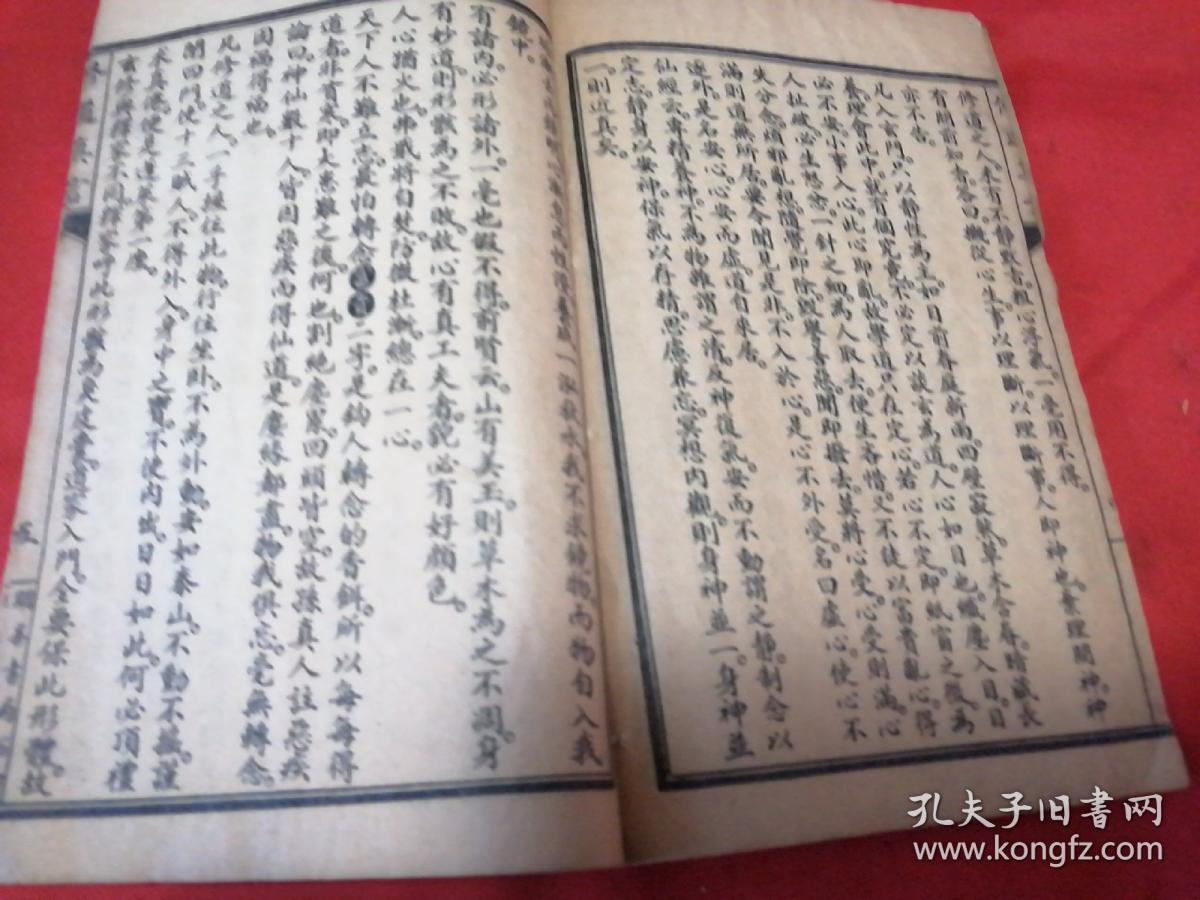 修道之人未有不靜默者。粗心浮氣一毫用不得。
有問前知者答曰機從心生事以理斷以理斷事。人即神也。素理問神。神
亦不告。
凡入玄門。只以靜性為主。如目前春庭新雨。四壁寂然。草木含春。暗藏長
養。理會此中。就有個究竟。不必定以談玄為道。人心如目也。纖塵入目。目
必不安。小事入心。此心即亂。故學道只在定心。若心不定。即紙窗之微。為
人扯破。必生怒忿。一針之細。為人取去。便生吝惜。又不徒以富貴亂心。得
失分念。頃邪亂想。隨覺即除。毀譽善惡。聞即撥去。莫將心受。心受則滿。心
滿則道無所居。要令聞見是非。不入於心。是心不外受。名曰虛心。使心不
逐外。是名安心。心安而虛。道自來居。
仙經云。專精養神。不為物雜。謂之清。反神復氣。安而不動。謂之靜。制念以
定志。靜身以安神。保氣以存精。思慮兼忘。冥想內觀。則身神並一。身神並
一。則近真矣。
我不求鏡物。而物自入我
鏡中。
有諸內。必形諸外。一毫也假不得。前賢云。山有美玉。則草木為之不凋。身
有妙道。則形骸為之不敗。故心有真工夫者。貌必有好顏色。
人心猶火也。弗戢將自焚。防微杜漸。總在一心。
天下人不難立志。最怕轉念。富貴二字。是鈎人轉念的香餌。所以每每得
道者。非貧寒。即大患難之後。何也。割絕塵累。回頭皆空。故孫真人註惡疾
論曰。神仙數十人。皆因惡疾而得仙道。是塵緣都盡。物我俱忘。毫無轉念。
因禍得福也。
凡修道之人。一手握住此物。行住坐臥。不為外動。安如泰山。不動不搖。謹
閉四門。使十三賊人。不得外入。身中之寶。不使內出。日日如此。何必頂禮
求真佛。便是蓬萊第一座。
玄修與釋家不同。釋家呼此形骸為臭皮囊。道家入門。全要保此形體。故
五
孔夫子旧书网
www.kongfz.com